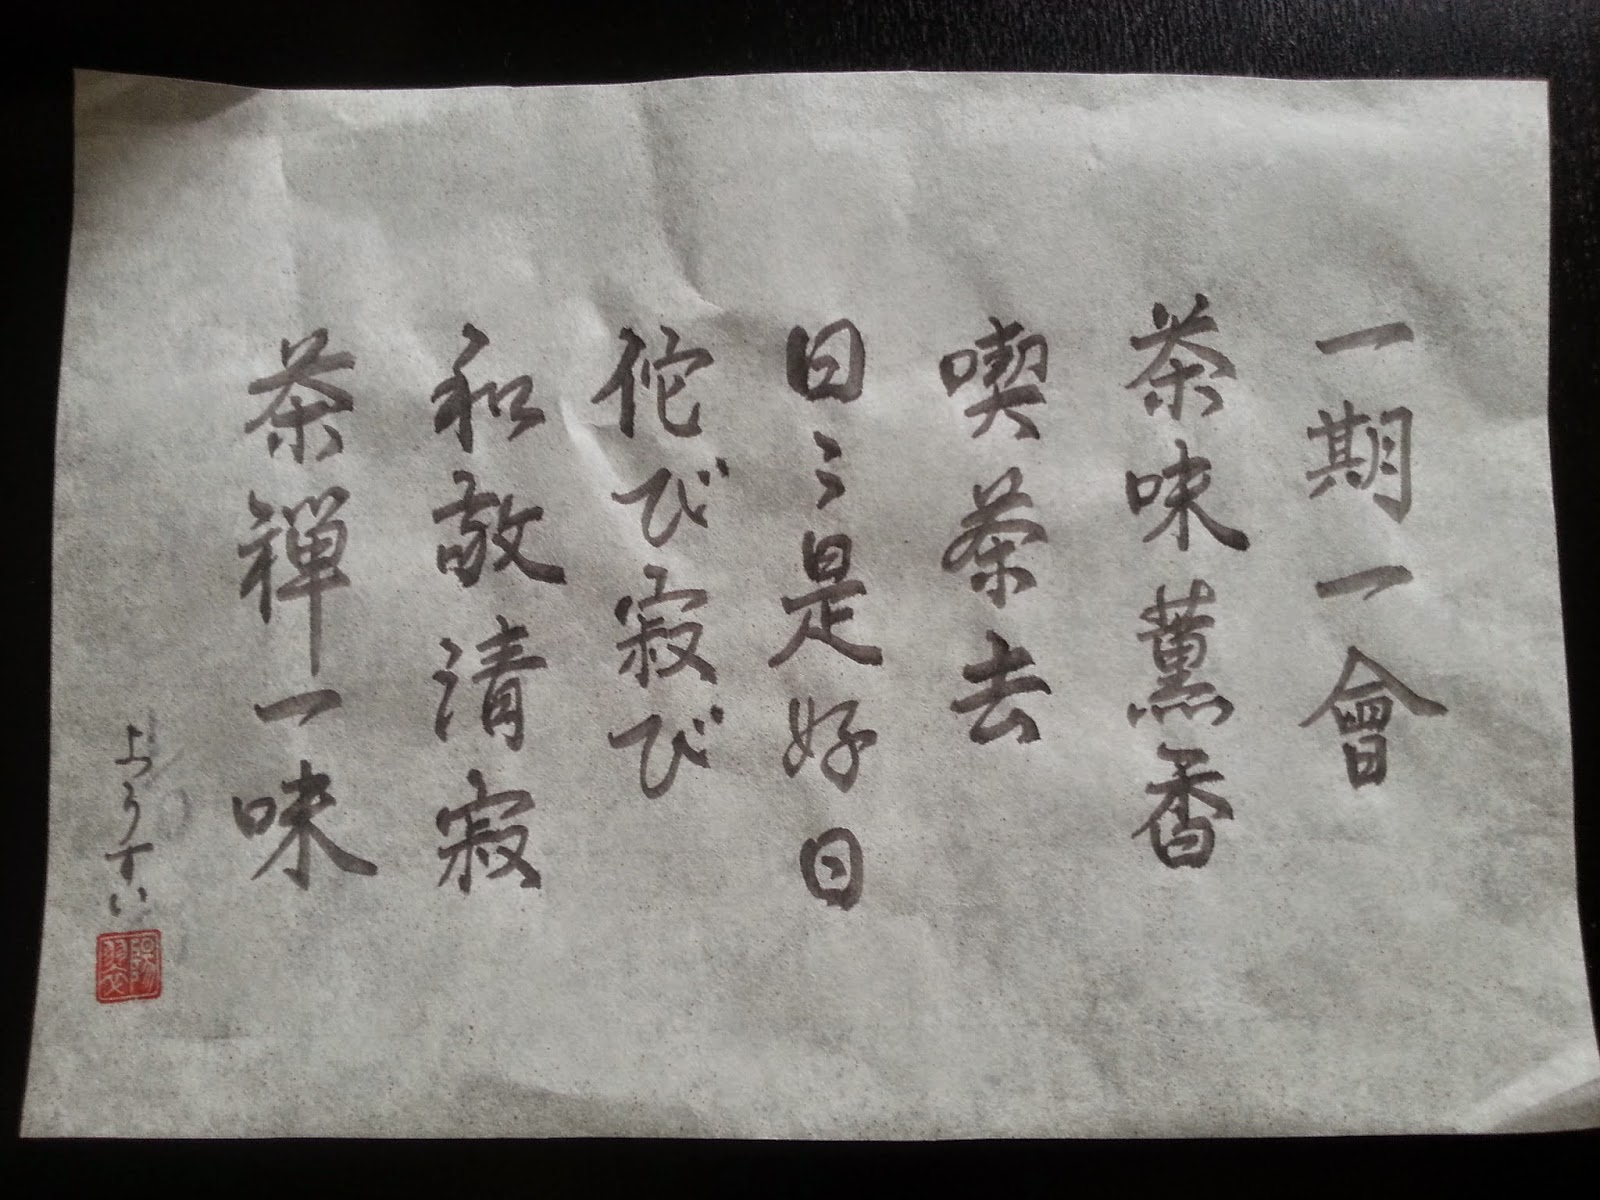 一期一會
茶味薫香
喫茶去
日々是好日
佗び寂び
和敬清寂
茶禅一味
ようすい